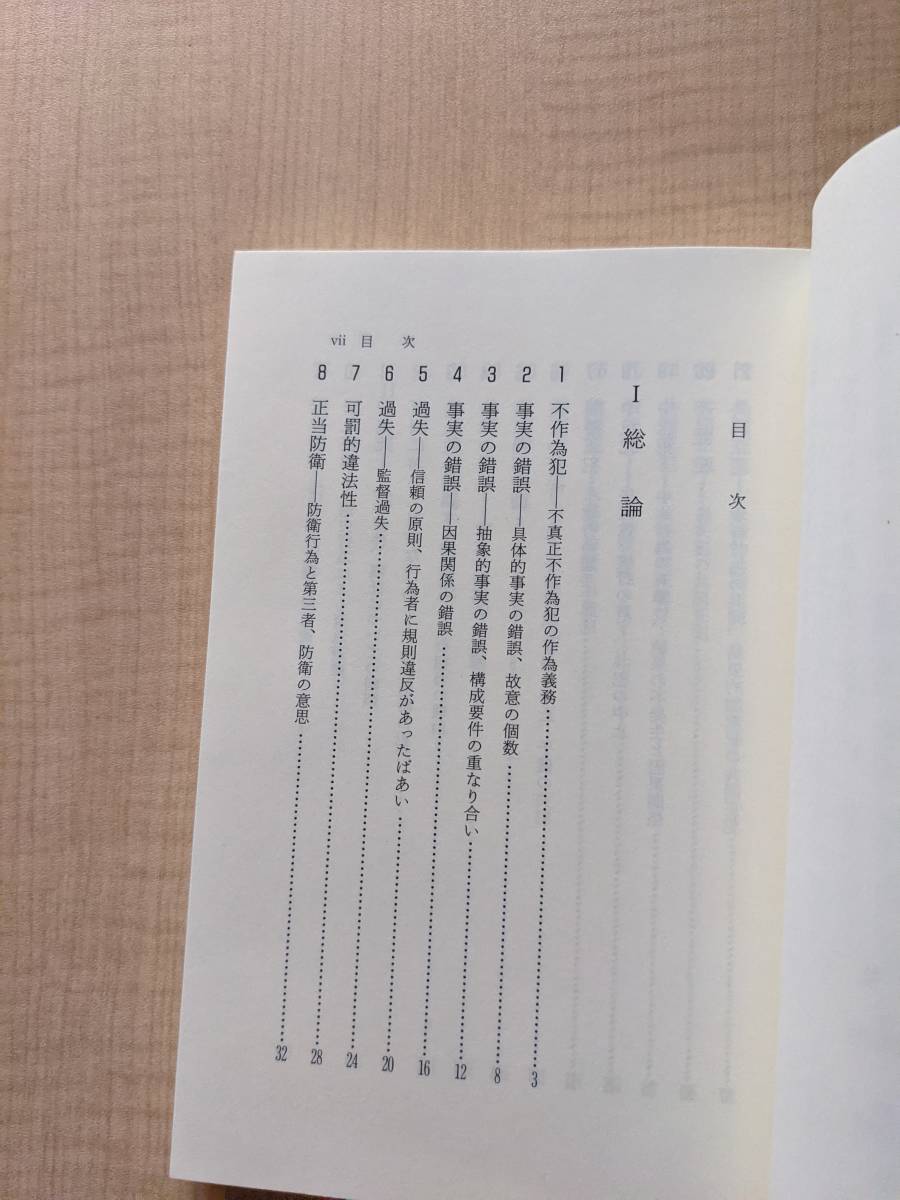 vii 目 次
目 次
I 総 論
1 不作為犯――不真正不作為犯の作為義務……3
2 事実の錯誤――具体的事実の錯誤、故意の個数……8
3 事実の錯誤――抽象的事実の錯誤、構成要件の重なり合い……12
4 事実の錯誤――因果関係の錯誤……16
5 過失――信頼の原則、行為者に規則違反があったばあい……20
6 過失――監督過失……24
7 可罰的違法性……28
8 正当防衛――防衛行為と第三者、防衛の意思……32